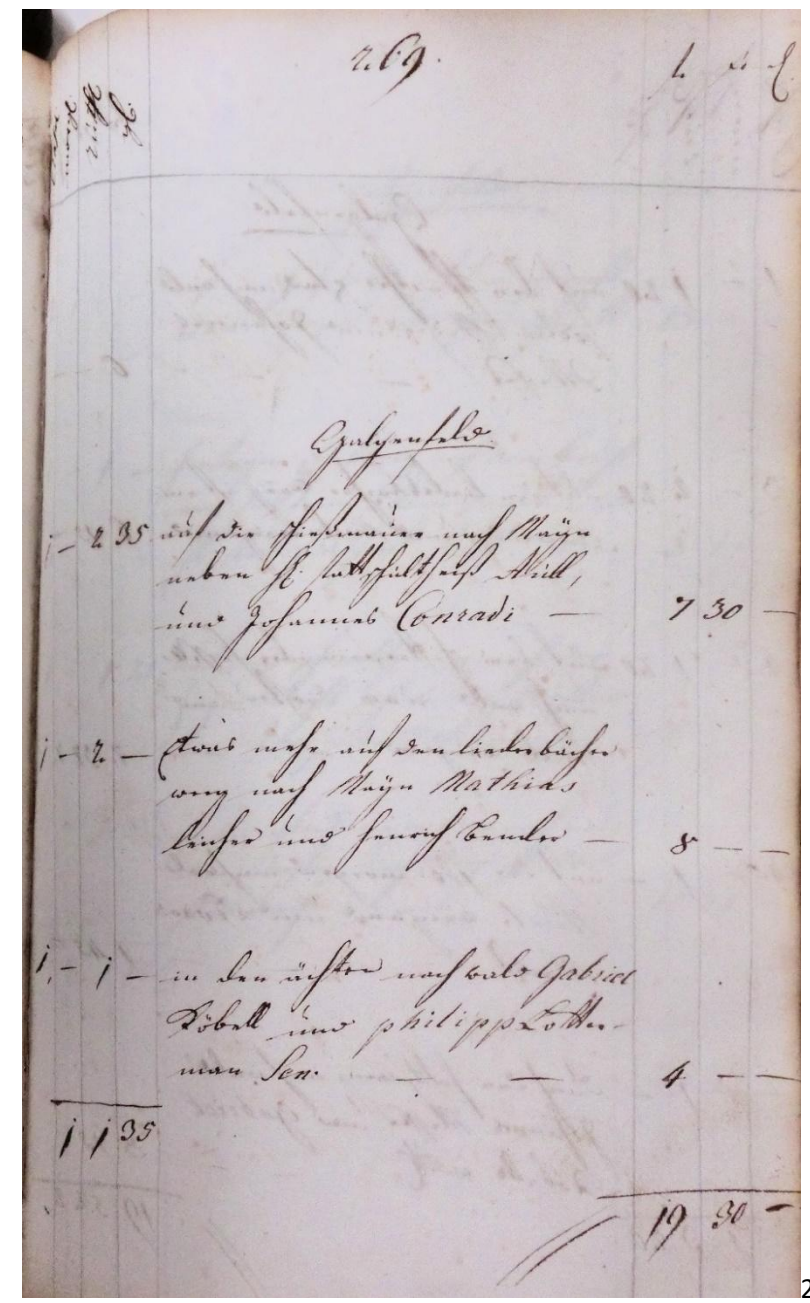 269.
Galgenfeld
1 – 2 35 auf die schießmauer nach Mayn
neben H. stattschultheiß Müll,
und Johannes Conradi — 7 30 —
1 – 2 — Etwas mehr auf den liederbächer
weeg nach Mayn Mathias
leicher und henrich Bender — 8 — —
1 – 1 — in den ächten nach wald Gabriel
Köbell und philipp Kotter-
man Sen. — — 4 — —
1 1 35
19 30 –